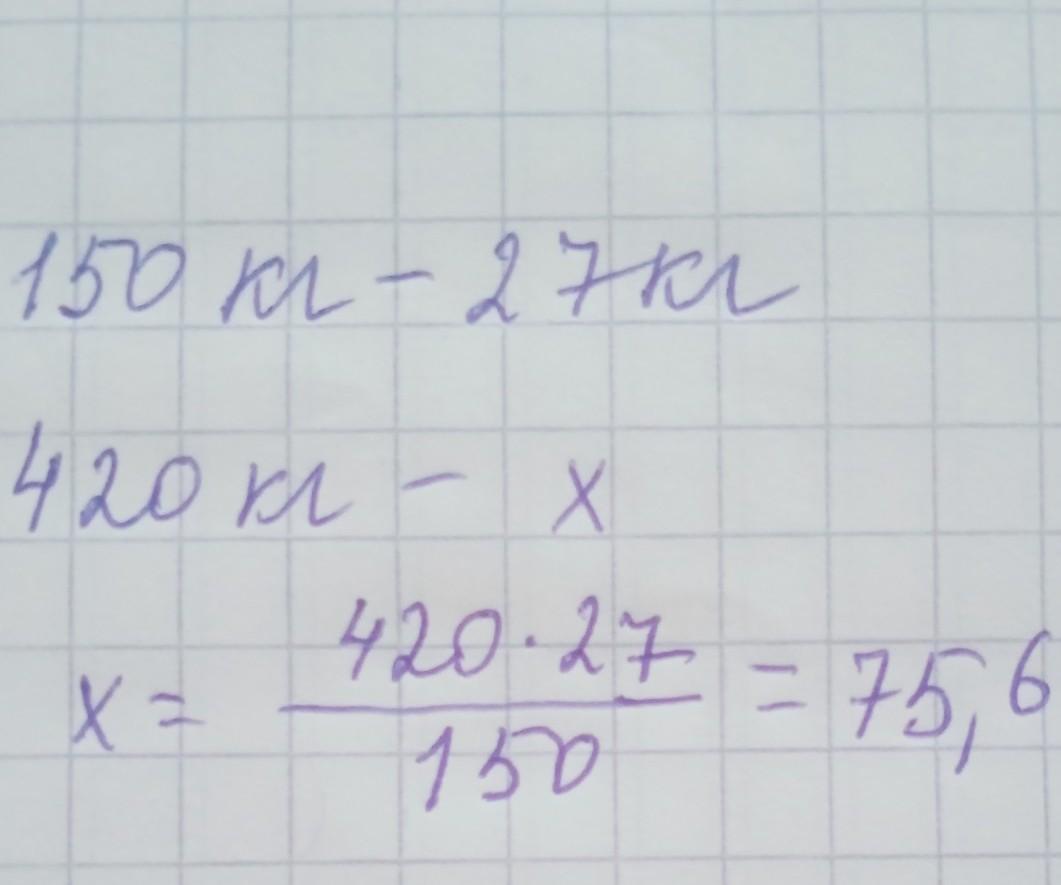 150 кг - 27 кг
420 кг - x
x = 420 · 27 / 150 = 75,6